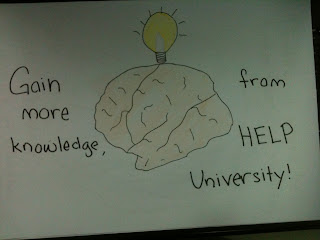 Gain
more
knowledge,
from
HELP
University!